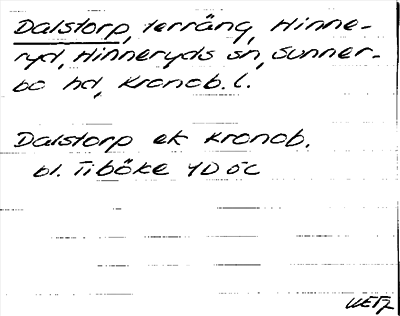 Dalstorp, terräng, Hinne-
ryd, Hinneryds sn, Sunner-
bo hd, Kronob. l.
Dalstorp ek Kronob.
bl. Tiböke 4D 5c